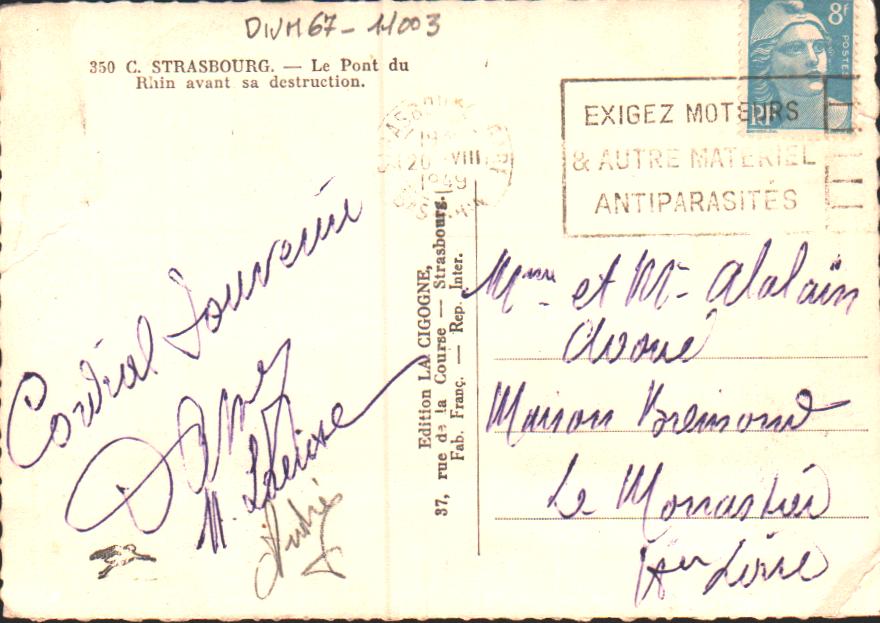 DIVM67-11003
350 C. STRASBOURG. — Le Pont du
Rhin avant sa destruction.
8f
POSTES
RF
EXIGEZ MOTEURS
& AUTRE MATERIEL
ANTIPARASITÉS
STRASBOURG
20 VIII
1949
Cordial Souvenir
André
Edition LA CIGOGNE,
37, rue de la Course — Strasbourg.
Fab. Franç. — Rep. Inter.
Mme et Mr Alalain
Avoué
Maison Bremond
Le Monastier
Hte Loire